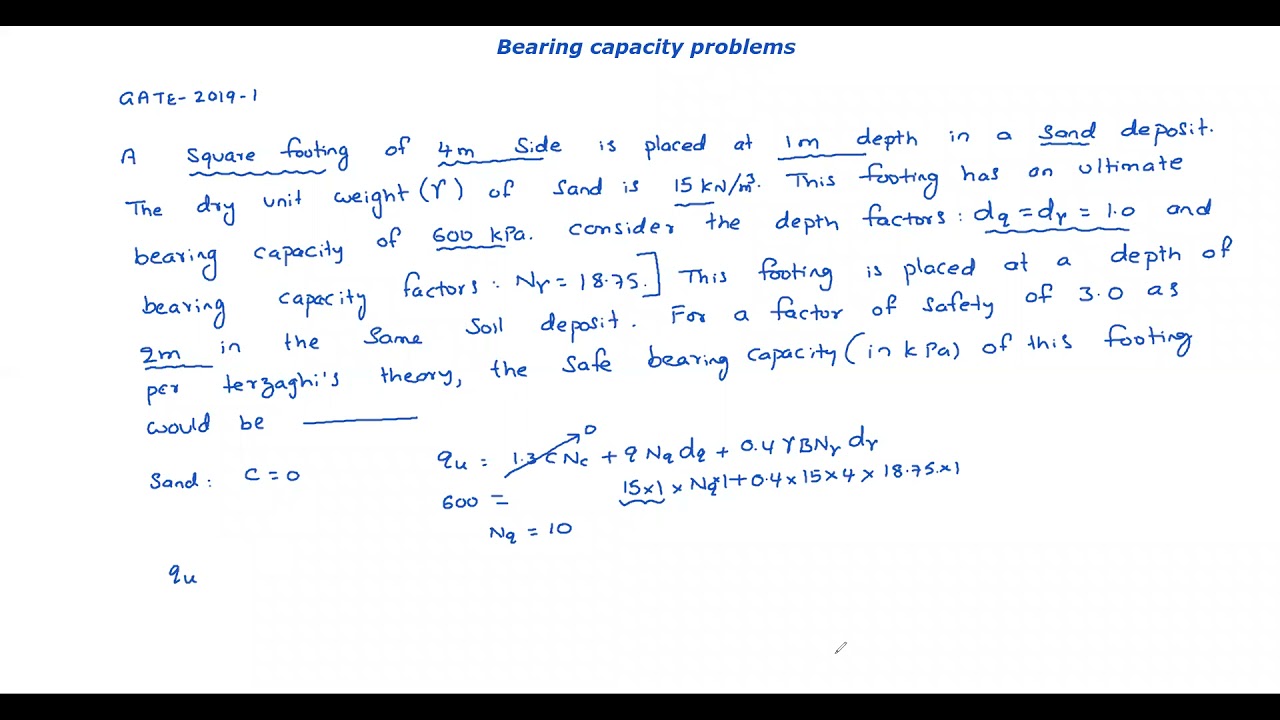 Bearing capacity problems
GATE-2019-1
A square footing of 4m side is placed at 1m depth in a sand deposit.
The dry unit weight (γ) of sand is 15 kN/m³. This footing has an ultimate
bearing capacity of 600 kPa. consider the depth factors: dq = dγ = 1.0 and
bearing capacity factors: Nγ = 18.75.] This footing is placed at a depth of
2m in the same soil deposit. For a factor of safety of 3.0 as
per terzaghi's theory, the safe bearing capacity (in kPa) of this footing
would be ______
Sand: C = 0
qu = 1.3 C Nc + q Nq dq + 0.4 γ B Nγ dγ
0
600 = 15×1 × Nq×1 + 0.4×15×4×18.75×1
Nq = 10
qu